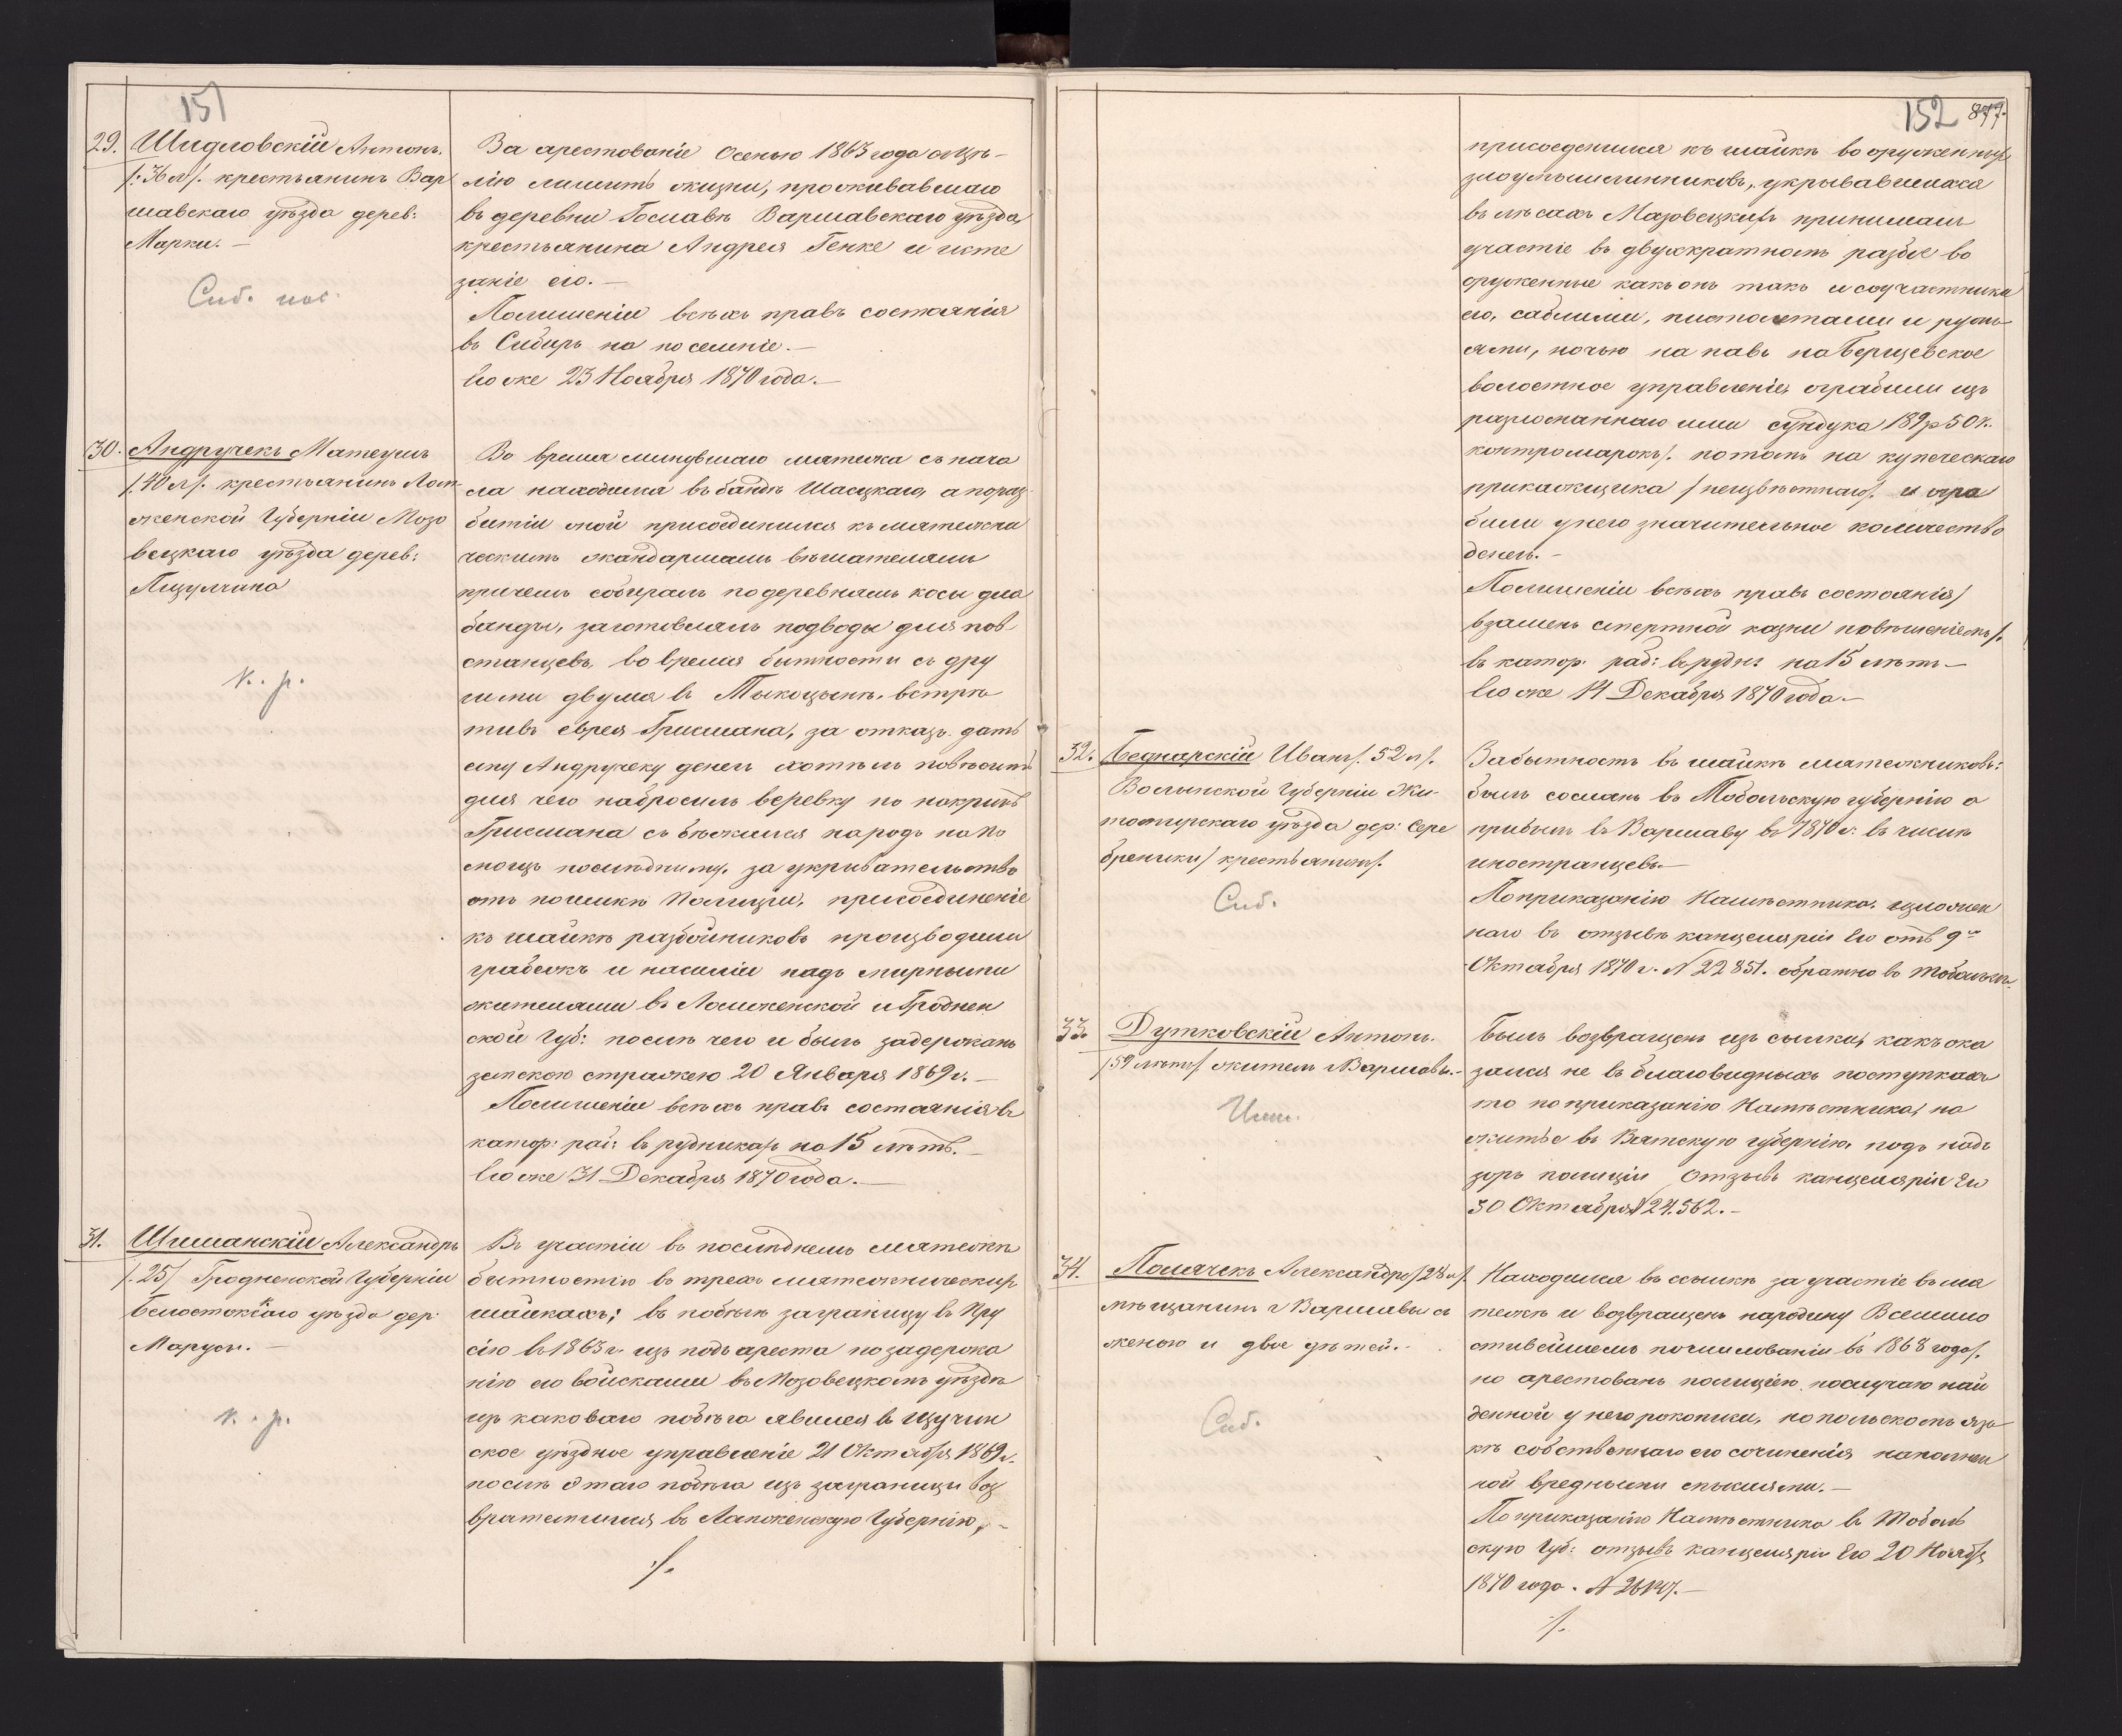 151
29. Шидловскій Антонъ.
/:36 л/. крестьянинъ Вар
шавскаго уѣзда дерев:
Марки. —
Сиб. пос.
За арестованіе Осенью 1863 года съ цѣ-
лію лишить жизни, проживавшаго
въ деревни Гославъ Варшавскаго уѣзда,
крестьянина Андрея Генке и исте
заніе его. —
По лишеніи всѣхъ правъ состоянія
въ Сибирь на поселеніе. —
Его же 23 Ноября 1870 года. —
30. Андручекъ Матеушъ
/.40 л/. крестьянинъ Лом-
женской Губерніи Мазо
вецкаго уѣзда дерев:
Пщулчина
к. р.
Во время минувшаго мятежа съ нача
ла находился въ бандѣ Шасцкаго, а по раз
битіи оной присоединился къ мятежни
ческимъ жандармамъ вѣшателямъ
причемъ собиралъ по деревнямъ косы для
банды, заготовлялъ подводы для пов
станцевъ, во время бытности съ дру
гими двумя въ Тыкоцынѣ, встрѣ
тивъ еврея Грисмана, за отказъ дать
ему Андручеку денегъ хотѣлъ повѣсить
для чего набросилъ веревку но на крикъ
Грисмана сбѣжался народъ на по
мощь послѣднему, за укрывательство
отъ поимки Полиціи, присоединеніе
къ шайкѣ разбойниковъ производили
грабежъ и насиліи надъ мирными
жителями въ Ломженской и Гроднен
ской Губ: послѣ чего и былъ задержанъ
земскою стражею 20 Января 1869 г. —
По лишеніи всѣхъ правъ состоянія въ
катор: раб: въ рудникахъ на 15 лѣтъ. —
Его же 31 Декабря 1870 года. —
31. Шиманскій Александръ
/.25/ Гродненской Губерніи
Белостокскаго уѣзда дер:
Марусы. —
к. р.
Въ участіи въ послѣднемъ мятежѣ
бытностію въ трехъ мятежническихъ
шайкахъ; въ побѣгѣ заграницу въ Пру
сію въ 1863 г. изъ подъ ареста по задержа
нію его войсками въ Мазовецкомъ уѣздѣ
изъ каковаго побѣга явился въ Щучин
ское уѣздное управленіе 21 Октября 1869 г.
послѣ этаго побѣга изъ заграницы воз
вратившися въ Ломженскую Губернію, —
./.
152 877.
присоединился къ шайкѣ вооруженныхъ
злоумышленниковъ, укрывавшихся
въ лѣсахъ Мазовецкихъ принималъ
участіе въ двухкратномъ разбоѣ во
оруженные какъ онъ такъ и соучастники
его, саблями, пистолетами и ружь
ями, ночью напавъ на
волостное управленіе, ограбили изъ
разломаннаго ими сундука 189 р 50 к.
контромарокъ/. потомъ на купеческаго
прикажщика /неизвѣстнаго/. и огра
били у него значительное количество
денегъ. —
По лишеніи всѣхъ правъ состоянія/
взаменъ смертной казни повѣшеніемъ/.
въ катор. раб: въ рудн: на 15 лѣтъ —
Его же 14 Декабря 1870 года. —
32. Беднарскій Иванъ/. 52 л/.
Волынской Губерніи Жи-
томирскаго уѣзда дер: Сере
бреники/ крестьянинъ/.
Сиб.
За бытность въ шайкѣ мятежниковъ:
былъ сосланъ въ Тобольскую губернію а
прибылъ въ Варшаву въ 1870 г. въ числѣ
иностранцевъ. —
По приказанію Намѣстника, изложен
наго въ отзывѣ канцеляріи Его отъ 9го
Октября 1870 г. N 22851. обратно въ Тобольскъ.
33. Дутковскій Антонъ.
/59 лѣтъ/ житель г Варшавы. —
Имп.
Былъ возвращенъ изъ ссылки, какъ ока
зался не въ благовидныхъ поступкахъ
то по приказанію Намѣстника, на
житье въ Вятскую губернію, подъ над
зоръ полиціи Отзывъ канцеляріи Его
30 Октября N 24.562. —
34. Полячекъ Александръ /28 л/.
мѣщанинъ г Варшавы съ
женою и двое дѣтей. —
Сиб.
Находился въ ссылкѣ за участіе въ мя
тежѣ и возвращенъ народину Всемило
стивѣйшемъ помилованіи въ 1868 года/.
но арестованъ полиціею, по случаю най
денной у него рукописи, на польскомъ язы
кѣ собственнаго его сочиненія наполнен
ной вредными мыслями. —
По приказанію Намѣстника въ Тоболь
скую Губ: отзывъ канцеляріи Его 20 Ноября
1870 года. N
./.